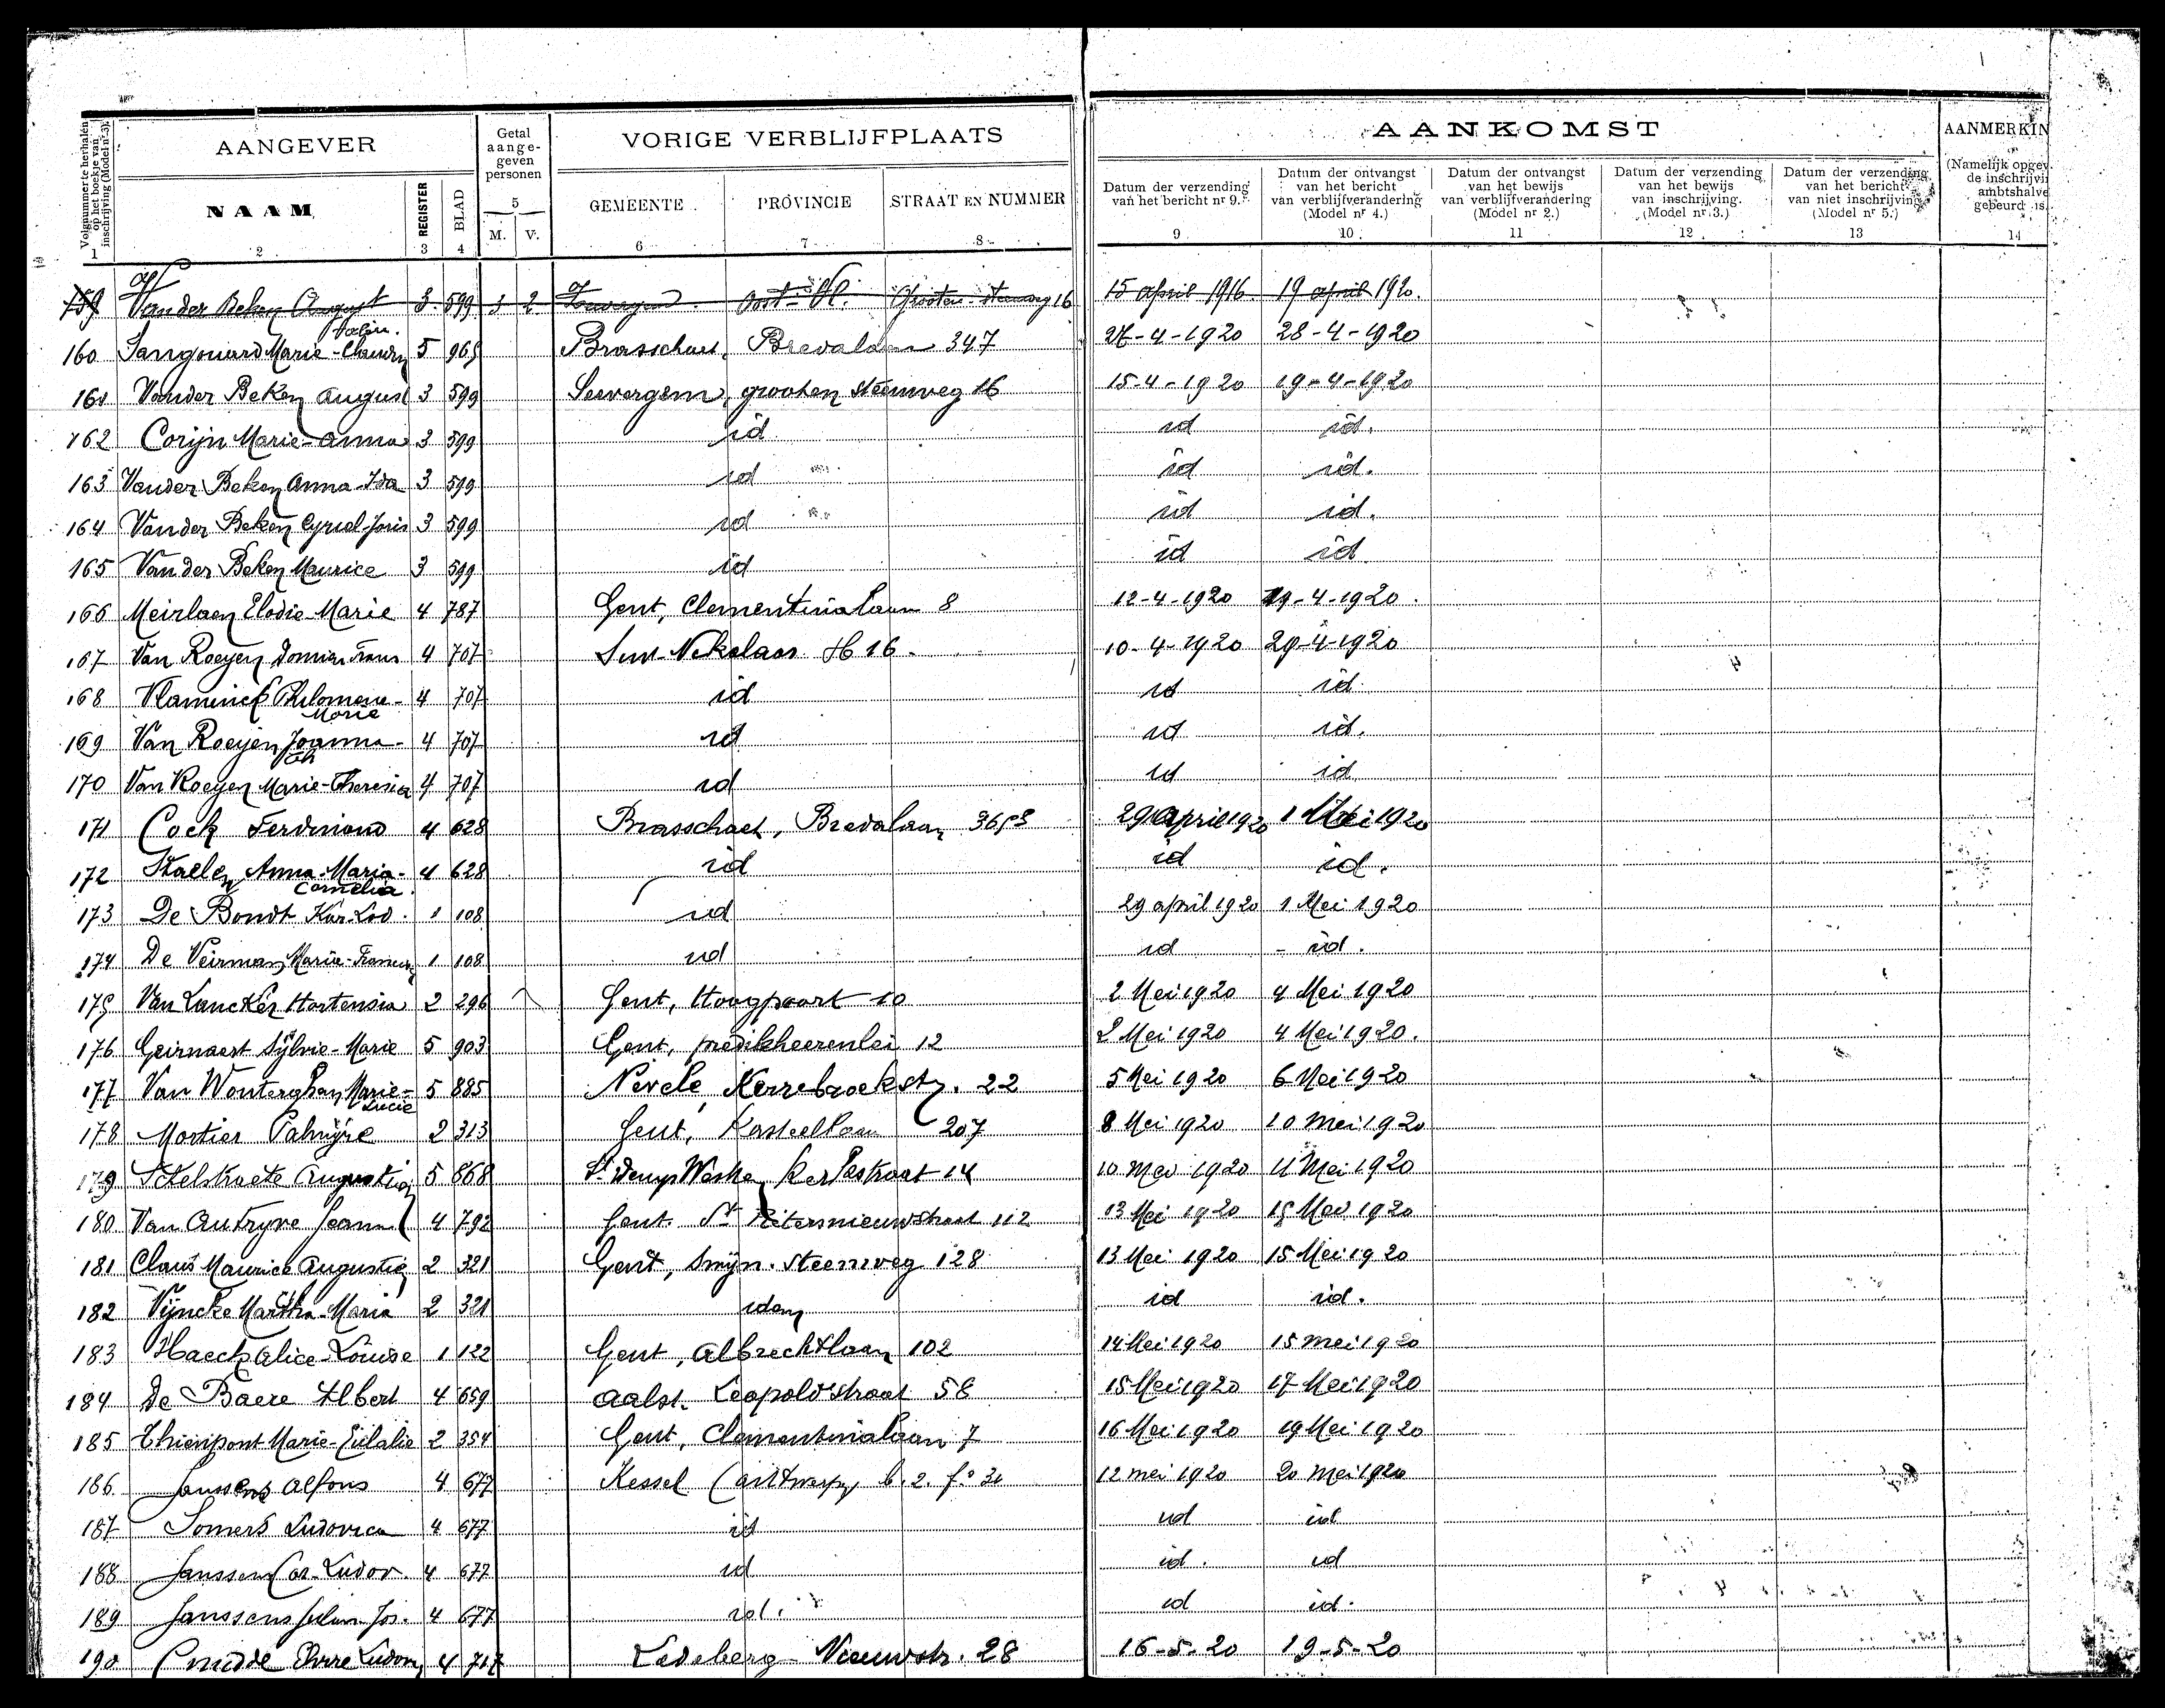 Volgnummer te herhalen op het boekje van inschrijving (Model nr 3).
AANGEVER
Getal aange- geven personen
VORIGE VERBLIJFPLAATS
AANKOMST
AANMERKIN
NAAM
REGISTER
BLAD
5
M. V.
GEMEENTE
PROVINCIE
STRAAT EN NUMMER
Datum der verzending van het bericht nr 9.
Datum der ontvangst van het bericht van verblijfverandering (Model nr 4.)
Datum der ontvangst van het bewijs van verblijfverandering (Model nr 2.)
Datum der verzending van het bewijs van inschrijving. (Model nr 3.)
Datum der verzending van het bericht van niet inschrijving (Model nr 5.)
(Namelijk opgev. de inschrijvi ambtshalve gebeurd is.
1 2 3 4 6 7 8 9 10 11 12 13 14
159 Van der Beken August 3 599 3 2 Oost-Vl. Grooten steenweg 16 15 april 1916 19 april 1920.
160 Marie 5 965 Brasschaet, Bredalaan 347 27-4-1920 28-4-1920
161 Vander Beken August 3 599 Seevergem, grooten steenweg 16 15-4-1920 19-4-1920
162 Corijn Marie-Anna 3 599 id id id.
163 Vander Beken Anna-Ida 3 599 id id id.
164 Vander Beken Cyriel-Joris 3 599 id id id.
165 Van der Beken Maurice 3 599 id id id
166 Meirlaen Elodie-Marie 4 787 Gent, Clementinalaan 8 12-4-1920 29-4-1920.
167 Van Roeyen Domien Frans 4 707 Sint-Nikolaas H 16. 10-4-1920 29-4-1920
168 Vlaminck Philomene-Marie 4 707 id id id
169 Van Roeyen Joanna- 4 707 id id id.
170 Van Roeyen Marie-Theresia 4 707 id id id
171 Cock Ferdinand 4 628 Brasschaet, Bredalaan 29 april 1920 1 Mei 1920
172 Staelen Anna-Maria-Cornelia 4 628 id id id.
173 De Bondt Kar-Lod. 1 108 id 29 april 1920 1 Mei 1920
174 De Veirman Marie- 1 108 id id id.
175 Van Lancker Hortensia 2 296 Gent, Hoogpoort 10 2 Mei 1920 4 Mei 1920
176 Geirnaert Sylvie-Marie 5 903 Gent, predikheerenlei 12 2 Mei 1920 4 Mei 1920.
177 Van Wonterghem Marie-Lucie 5 885 Nevele, Kerrebroekstr. 22 5 Mei 1920 6 Mei 1920
178 Mortier Palmyre 2 313 Gent, Kasteellaan 207 8 Mei 1920 10 Mei 1920
179 Ickelstraete Augustien 5 868 St Denys Westrem Kerkstraat 14 10 Mei 1920 11 Mei 1920
180 Van Autryve Jeanne 4 792 Gent. St Pietersnieuwstraat 112 13 Mei 1920 15 Mei 1920
181 Claus Maurice Augustin 2 321 Gent, Smijn. steenweg 128 13 Mei 1920 15 Mei 1920
182 Vijncke Martha-Maria 2 321 idem id id.
183 Haeck Alice-Louise 1 122 Gent, Albrechtlaan 102 14 Mei 1920 15 mei 1920
184 De Baere Albert 4 659 Aalst. Leopoldstraat 58 15 Mei 1920 17 Mei 1920
185 Thienpont Marie-Eulalie 2 354 Gent, Clementinalaan 7 16 Mei 1920 19 Mei 1920
186 Janssens Alfons 4 677 Kessel (Antwerpen b. 2. fo 31 12 mei 1920 20 mei 1920
187 Somers Ludovica 4 677 id id id
188 Janssens Car-Ludov. 4 677 id id. id
189 Janssens Jos. 4 677 id. id id.
190 Cnudde Ludov 4 717 Ledeberg Nieuwstr. 28 16-5-20 19-5-20